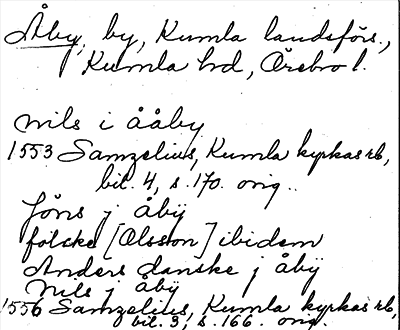 Åby, by, Kumla landsförs.,
Kumla hd, Örebro l.
Nils i Ååby
1553 Samzelius, Kumla kyrkas rb,
bil. 4, s. 170. orig..
Jöns j åbÿ
folcke [Olsson] ibidem
Anders danske j åbÿ
Nils j åby
1556 Samzelius, Kumla kyrkas rb,
bil. 3, s. 166. orig.